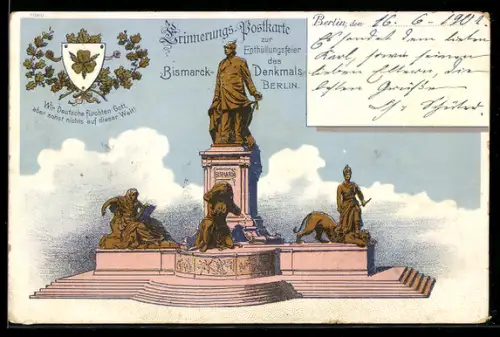 Erinnerungs-Postkarte
zur
Enthüllungsfeier
des
Bismarck-Denkmals
BERLIN.
Wir Deutsche fürchten Gott,
aber sonst nichts auf dieser Welt!
Berlin, den 16. 6. 1901
Es sendet dem lieben
Karl, sowie seinen
lieben Eltern, die
besten Grüße
BISMARCK